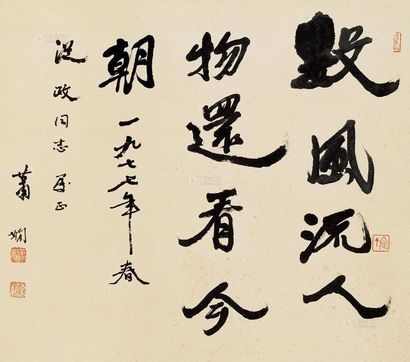 数风流人
物還看今
朝 一九七七年春
政同志 正
蕭嫻